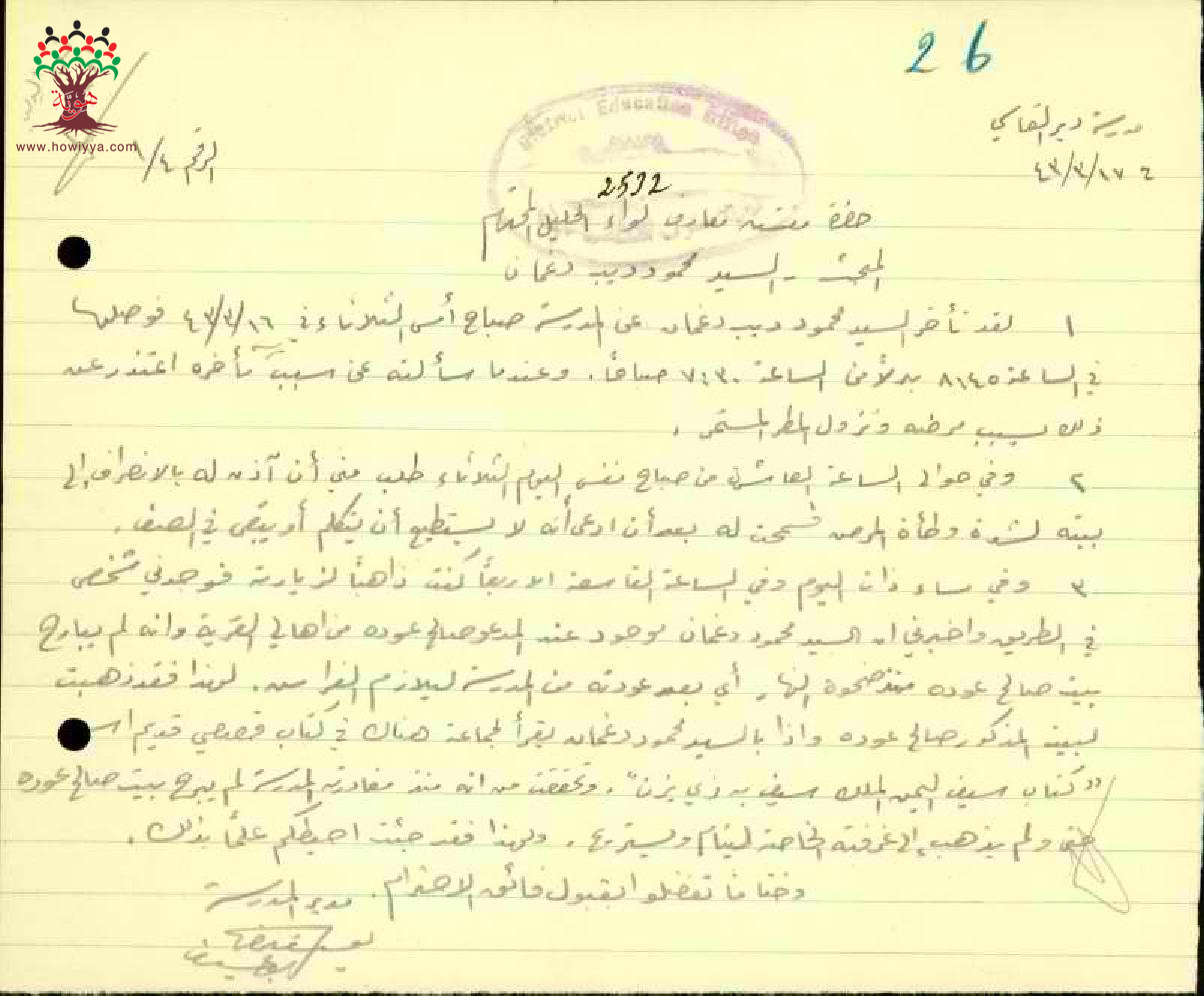 26
هوية
www.howiyya.com
مدرسة دير القاسي
١٧/٣/٤٣
الرقم ١/٤
District Education Office
2532
حضرة مفتش معارف لواء الجليل المحترم
المبحث - السيد محمود ديب دغمان
١ لقد تأخر السيد محمود ديب دغمان عن المدرسة صباح أمس الثلاثاء في ١٦/٣/٤٣ فوصلها
في الساعة ٨،٤٥ بدلاً من الساعة ٧،٣٠ صباحاً. وعندما سألته عن سبب تأخره اعتذر عن
ذلك بسبب مرضه ونزول المطر المستمر.
٢ وفي حوالي الساعة العاشرة من صباح نفس اليوم الثلاثاء طلب مني أن آذن له بالانصراف إلى
بيته لشدة وطأة المرض فسمحت له بعد أن ادعى أنه لا يستطيع أن يتكلم أو يبقى في الصف.
٣ وفي مساء ذات اليوم وفي الساعة التاسعة الا ربعاً كنت ذاهباً لزيارته فوجدني شخص
في الطريق واخبرني ان السيد محمود دغمان موجود عند المدعو صالح عوده من اهالي القرية وانه لم يبارح
بيت صالح عوده منذ ضحوة النهار أي بعد عودته من المدرسة ليلازم الفراش. لهذا فقد ذهبت
لبيت المذكور صالح عوده واذا بالسيد محمود دغمان يقرأ لجماعة هناك في كتاب قصصي قديم
"كتاب سيف اليمن الملك سيف بن ذي يزن". وتحققت من انه منذ مغادرته المدرسة لم يبرح بيت صالح عوده
حتى ولم يذهب إلى غرفته الخاصة لينام ويستريح. ولهذا فقد جئت احيطكم علماً بذلك.
وختاماً تفضلوا بقبول فائق الاحترام.
مدير المدرسة